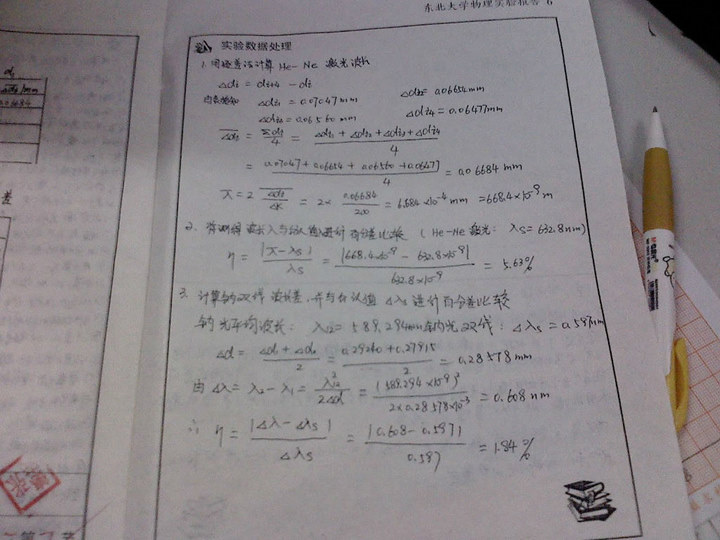 东北大学物理实验报告 6
实验数据处理
1. 用逐差法计算 He-Ne 激光波长
Δdi = di+4 - di
Δd1 = 0.07047mm Δd2 = 0.06654mm
Δd3 = 0.06560mm Δd4 = 0.06477mm
= 0.07047 + 0.06654 + 0.06560 + 0.06477 / 4 = 0.06684 mm
λ = 2 Δd / ΔK = 2 × 0.06684 / 200 = 6.684 × 10⁻⁴ mm = 668.4 × 10⁻⁹ m
2. 将测得波长λ与公认值进行百分差比较 (He-Ne 激光: λs = 632.8nm)
η = |λ - λs| / λs = |668.4×10⁻⁹ - 632.8×10⁻⁹| / 632.8×10⁻⁹ = 5.63%
3. 计算钠双线波长差, 并与公认值 Δλs 进行百分差比较
钠光平均波长: = 589.294nm 钠光双线: Δλs = 0.597nm
Δd = Δd1 + Δd2 / 2 = 0.29240 + 0.27915 / 2 = 0.28578 mm
由 Δλ = λ2 - λ1 = λ² / 2Δd = (589.294 × 10⁻⁹)² / 2×0.28578×10⁻³ = 0.608 nm
∴ η = |Δλ - Δλs| / Δλs = |0.608 - 0.597| / 0.597 = 1.84%